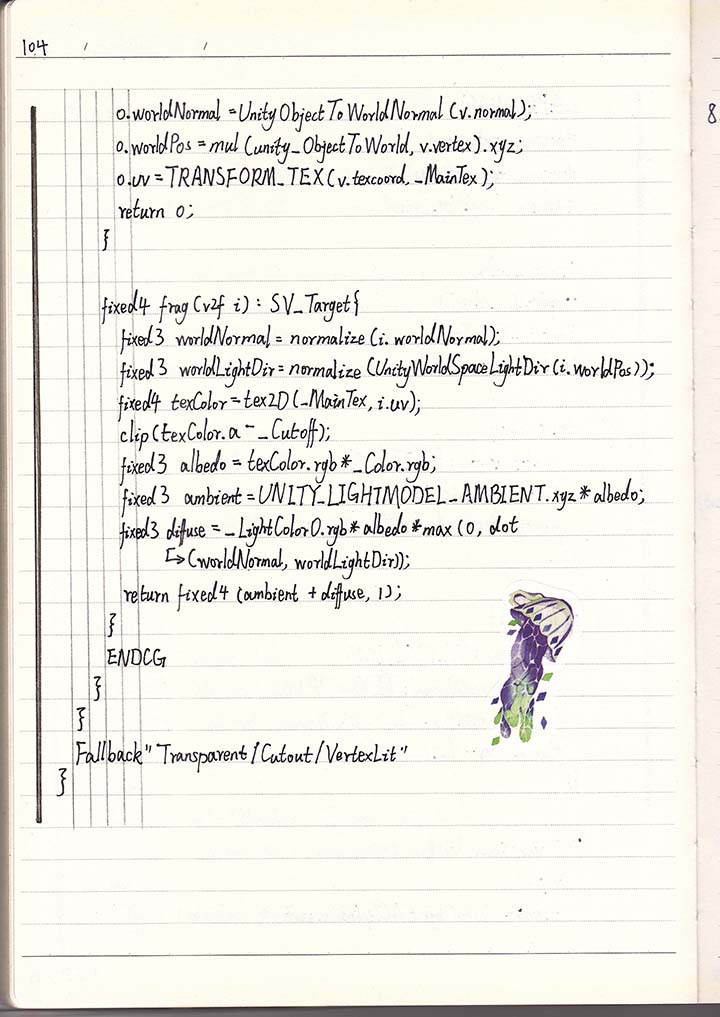 104 / /
o.worldNormal = UnityObjectToWorldNormal (v.normal);
o.worldPos = mul (unity_ObjectToWorld, v.vertex).xyz;
o.uv = TRANSFORM_TEX(v.texcoord, _MainTex);
return o;
}
fixed4 frag (v2f i) : SV_Target{
fixed3 worldNormal = normalize (i.worldNormal);
fixed3 worldLightDir = normalize (UnityWorldSpaceLightDir (i.worldPos));
fixed4 texColor = tex2D (_MainTex, i.uv);
clip(texColor.a - _Cutoff);
fixed3 albedo = texColor.rgb * _Color.rgb;
fixed3 ambient = UNITY_LIGHTMODEL_AMBIENT.xyz * albedo;
fixed3 diffuse = _LightColor0.rgb * albedo * max (0, dot
↳ (worldNormal, worldLightDir));
return fixed4 (ambient + diffuse, 1);
}
ENDCG
}
}
Fallback "Transparent/Cutout/VertexLit"
}
8.